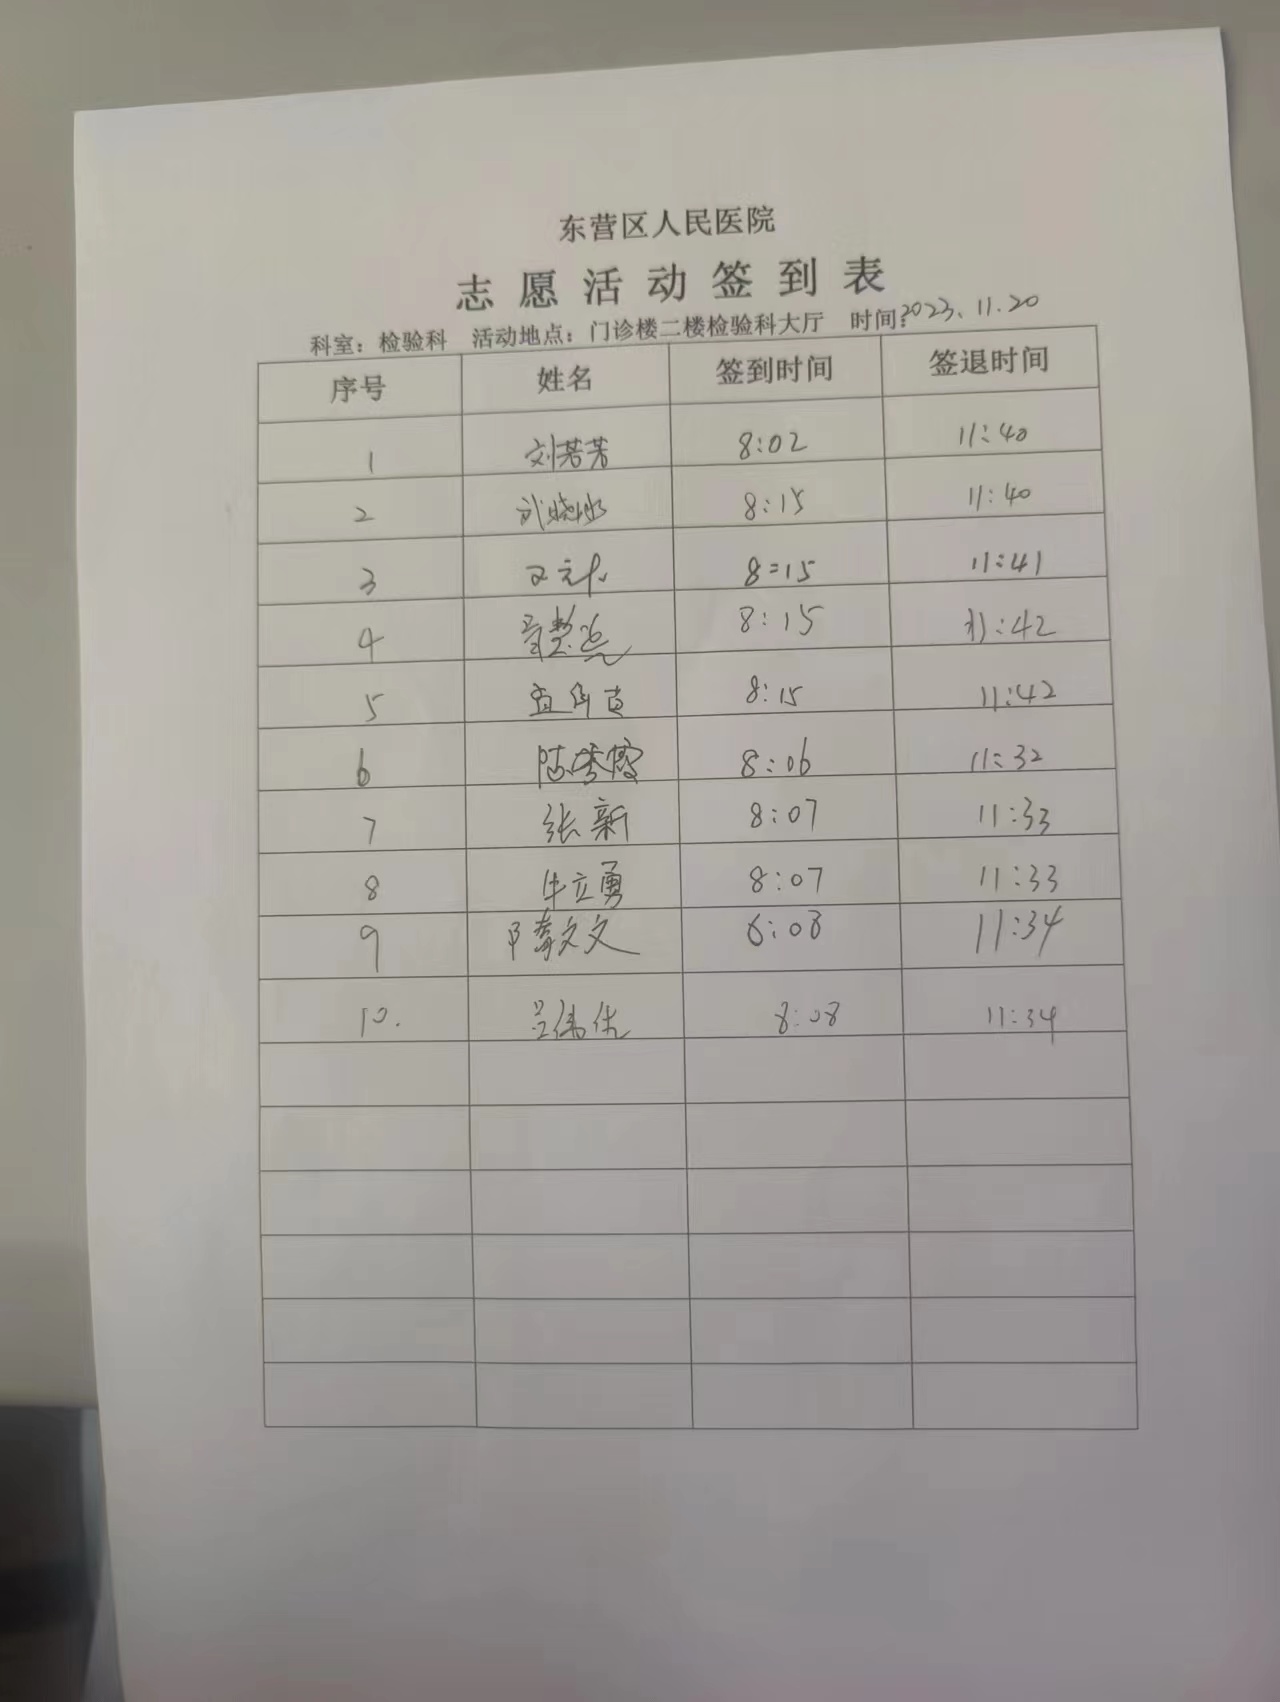 东营区人民医院
志愿活动签到表
科室：检验科 活动地点：门诊楼二楼检验科大厅 时间：2023、11.20
序号 姓名 签到时间 签退时间
1 刘若芳 8:02 11:40
2 武晓冰 8:15 11:40
3 8:15 11:41
4 8:15 11:42
5 8:15 11:42
6 陈秀霞 8:06 11:32
7 张新 8:07 11:33
8 牛立勇 8:07 11:33
9 隋文文 8:08 11:34
10. 吕伟佳 8:08 11:34